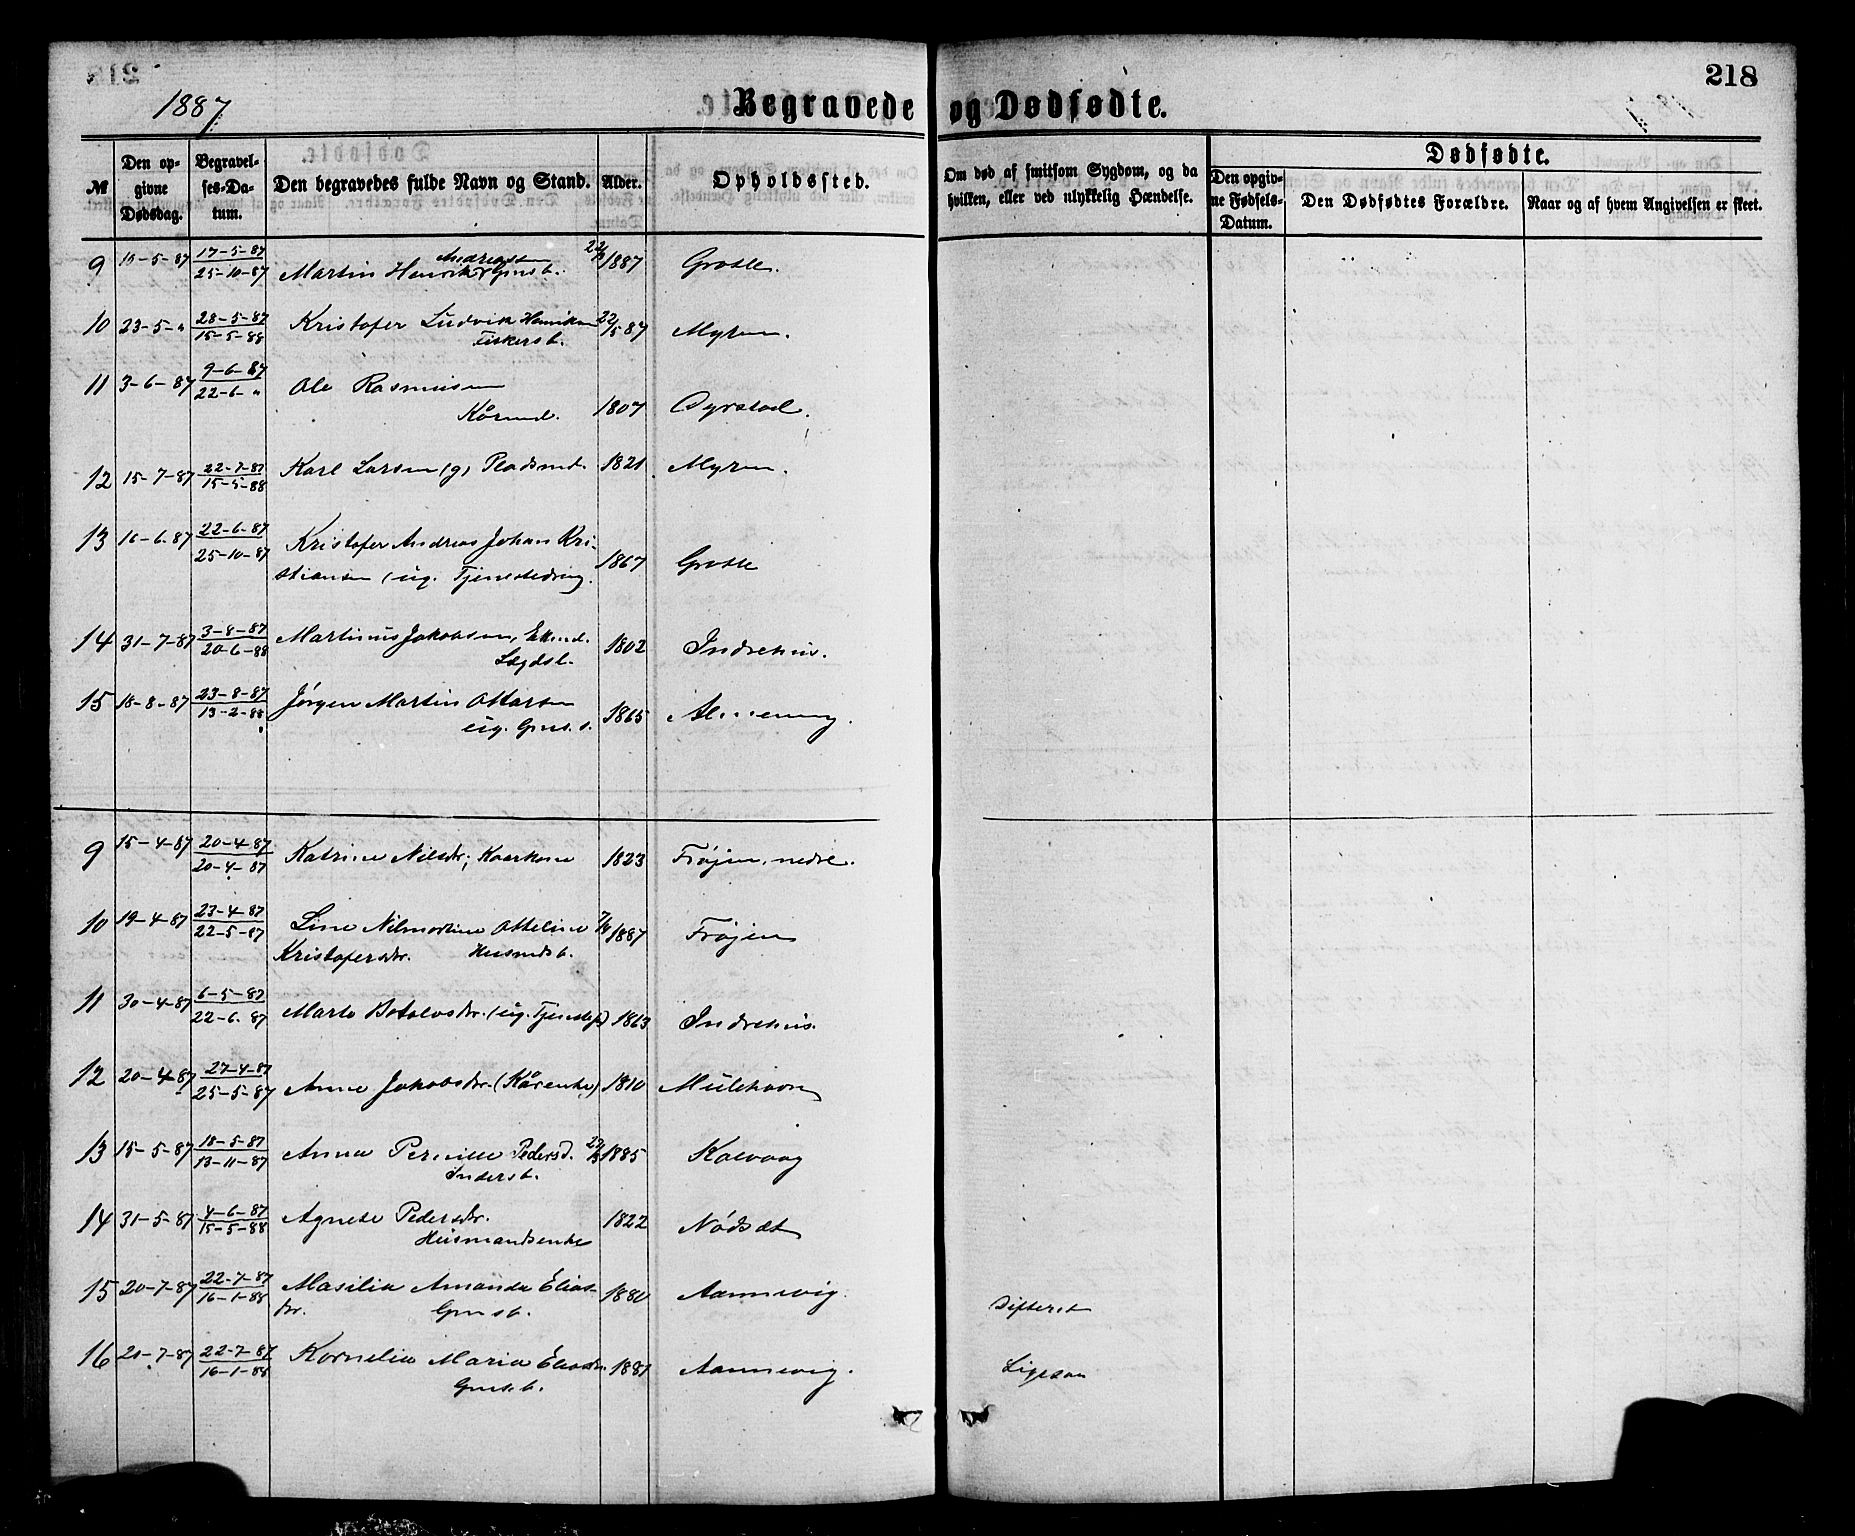 218
1887
Begravede og Dødfødte.
№
Den opgivne Dødsdag.
Begravelses-Datum.
Den begravedes fulde Navn og Stand.
Alder.
Opholdssted.
Om død af smitsom Sygdom, og da hvilken, eller ved ulykkelig Hændelse.
Dødfødte.
Den opgivne Fødsels-Datum.
Den Dødfødtes Forældre.
Naar og af hvem Angivelsen er skeet.
Andreassen
9 10-5-87 17-5-87 25-10-87 Martin Henrik Gmsb. 1887 Grotle.
10 23-5-" 28-5-87 15-5-88 Kristofer Ludvik Henriksen 22/5 87 Myren.
Fiskersb.
11 3-6-87 9-6-87 22-6-" Ole Rasmusen
Kårmd. 1807 Dyrstad.
12 15-7-87 22-7-87 15-5-88 Karl Larsen (g) Pladsmd. 1821 Myren.
13 16-6-87 22-6-87 25-10-87 Kristofer Andreas Johan Kri-
stiansen (ug. Tjenestedreng. 1867 Grotle
14 31-7-87 3-8-87 20-6-88 Martinus Jakobsen, Ekmd. 1802 Indrehus.
Lægdsl.
15 18-8-87 23-8-87 13-2-88 Jørgen Martin Ottarsen
ug. Gms.s. 1865 Almenning.
9 15-4-87 20-4-87 20-4-87 Katrine Nilsdr; Kaarkone 1823 Frøjen, nedre.
10 19-4-87 23-4-87 22-5-87 Line Nilmartine Otteline 7/4 1887 Frøjen
Kristofersdr. Husmdsb.
11 30-4-87 6-5-87 22-6-87 Marte Botolvsdr. (ug. Tjenstep) 1863 Indrehus.
12 20-4-87 27-4-87 25-5-87 Anne Jakobsdr. (Kårenke) 1810 Mulehavn
13 15-5-87 18-5-87 13-11-87 Anna Pernille Pedersd. 1885 Kalvaag
Indersb.
14 31-5-87 4-6-87 15-5-88 Agnete Pedersdr. 1822 Nødset
Husmandsenke
15 20-7-87 22-7-87 16-1-88 Masilia Amanda Elias- 1880 Aannevig. Difterit
dr. Gmsb.
16 20-7-87 22-7-87 16-1-88 Kornelia Maria Eliasdr. 1881 Aannevig. Ligesaa
Gmsb.